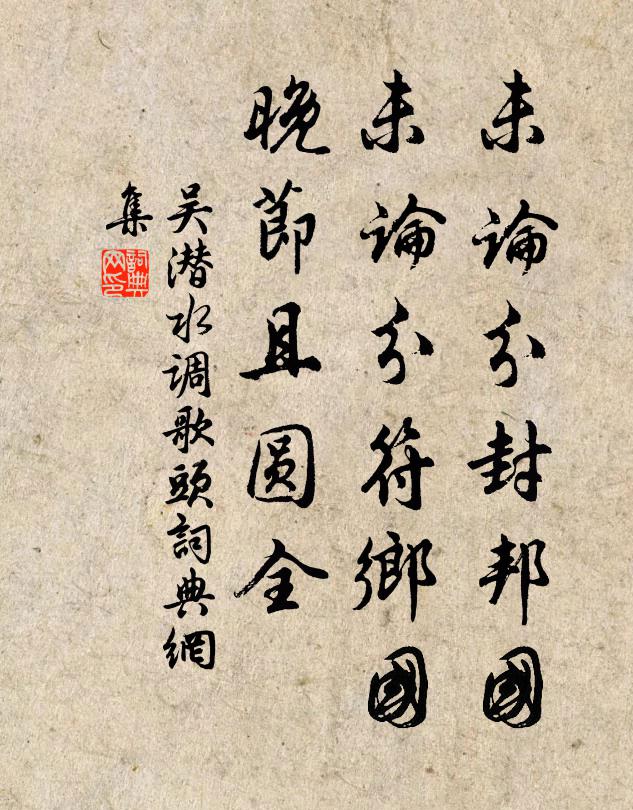 未論分封邦國
未論分符鄉國
晚節且圆全
吴潜水调歌頭詞典網
集
詞典
网印